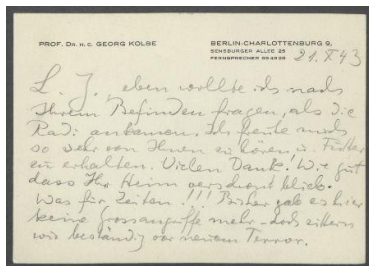 PROF. DR. H. C. GEORG KOLBE
BERLIN-CHARLOTTENBURG 9,
SENSBURGER ALLEE 25
FERNSPRECHER
21. X 43
L. J., eben wollte ich nach
Ihrem Befinden fragen, als die
Radi ankamen. Ich freute mich
so sehr von Ihnen zu hören u.
zu erhalten. Vielen Dank! Wie gut
dass Ihr Heim verschont blieb.
Was für Zeiten!!! Bisher gab es hier
keine Grossangriffe mehr - doch zittern
wir beständig vor neuem Terror.